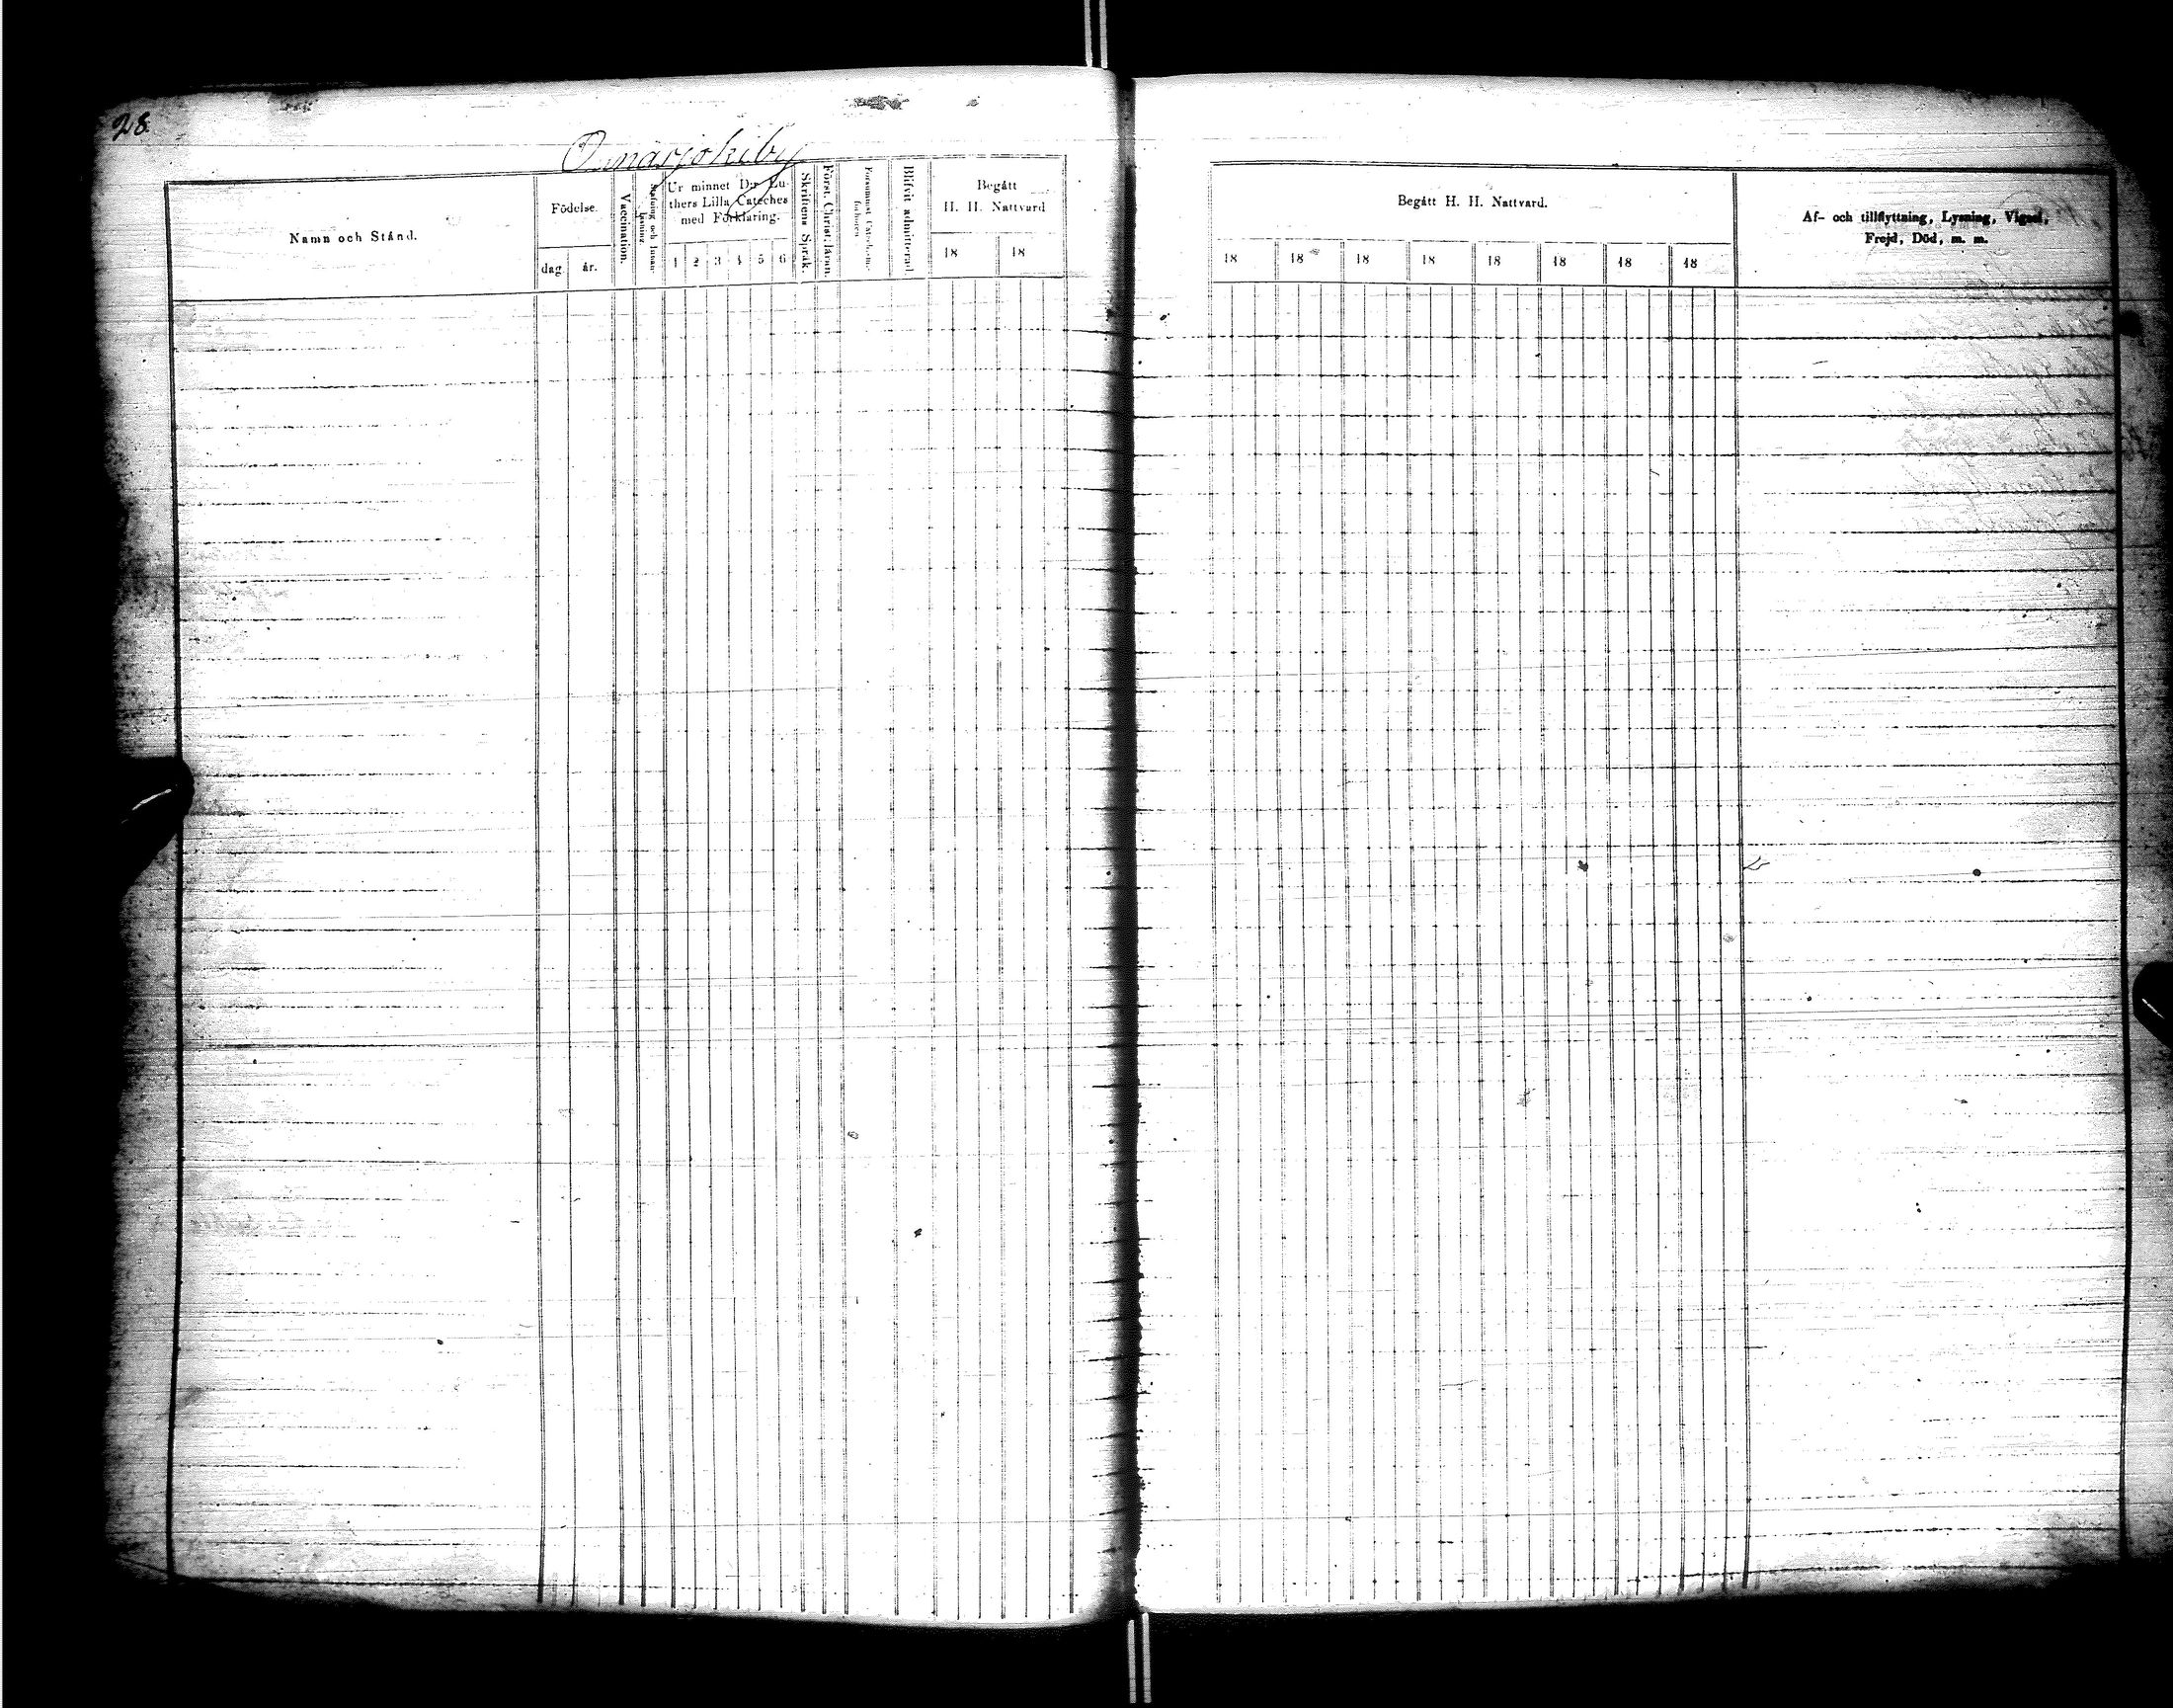 28.
Ornärjokiby
Namn och Stånd.
Födelse.
dag.
år.
Vaccination.
Stafning och Innan-
läsning.
Ur minnet D:r Lu-
thers Lilla Cateches
med Förklaring.
1 2 3 4 5 6
Skriftens Språk.
Först. Christ. läran.
Försummat Catechism.-
förhören.
Blifvit admitterad.
Begått
H. H. Nattvard
18 18
Begått H. H. Nattvard.
18 18 18 18 18 18 18 18
Af- och tillflyttning, Lysning, Vigsel,
Frejd, Död, m. m.